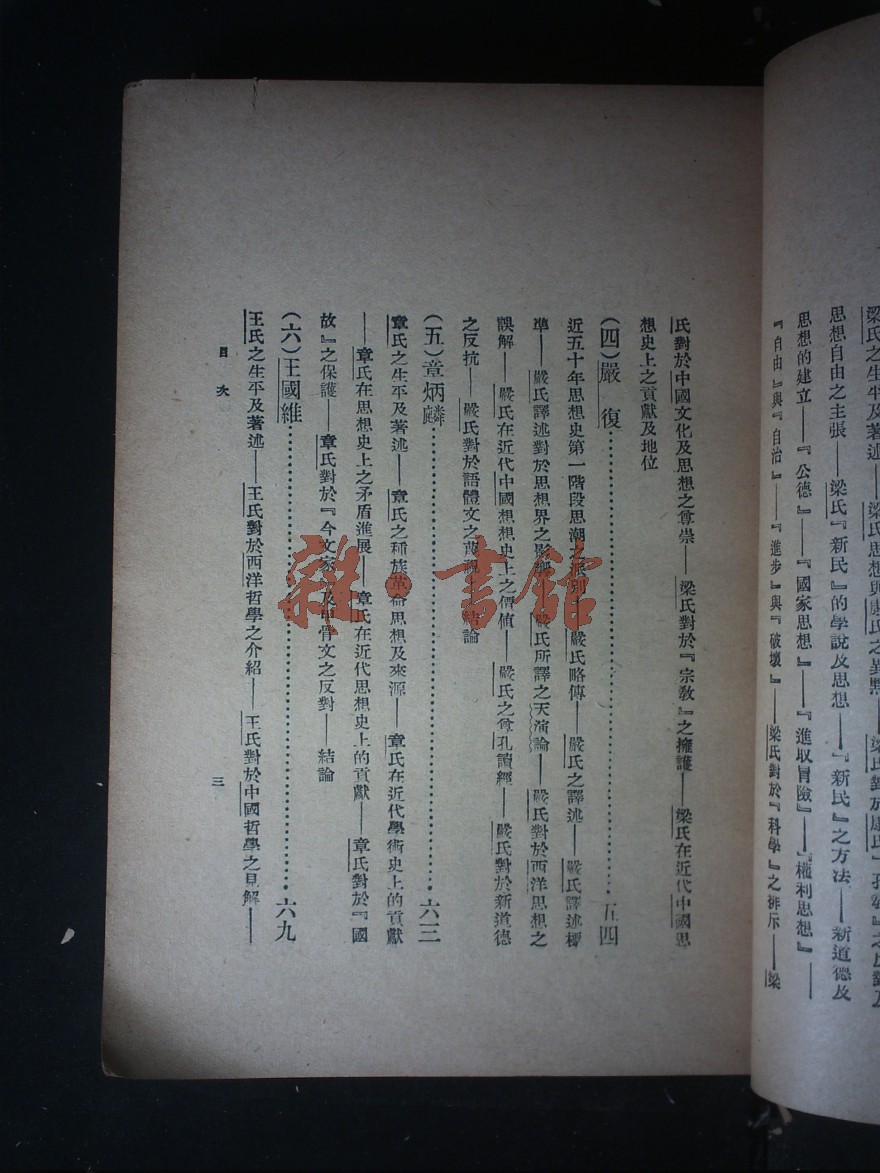 梁氏之生平及著述——梁氏思想與康氏之異點——梁氏對於康氏
思想自由之主張——梁氏『新民』的學說及思想——『新民』之方法——新道德及
思想的建立——『公德』——『國家思想』——『進取冒險』——『權利思想』——
『自由』與『自治』——『進步』與『破壞』——梁氏對於『科學』之排斥——梁
氏對於中國文化及思想之尊崇——梁氏對於『宗教』之擁護——梁氏在近代中國思
想史上之貢獻及地位
(四)嚴復……五四
近五十年思想史第一階段思潮之派別——嚴氏略傳——嚴氏之譯述——嚴氏譯述標
準——嚴氏譯述對於思想界之影響——嚴氏所譯之天演論——嚴氏對於西洋思想之
誤解——嚴氏在近代中國思想史上之價值——嚴氏之尊孔讀經——嚴氏對於新道德
之反抗——嚴氏對於語體文之蔑視——結論
(五)章炳麟……六三
章氏之生平及著述——章氏之種族革命思想及來源——章氏在近代學術史上的貢獻
——章氏在思想史上之矛盾進展——章氏在近代思想史上的貢獻——章氏對於『國
故』之保護——章氏對於『今文家』及甲骨文之反對——結論
(六)王國維……六九
王氏之生平及著述——王氏對於西洋哲學之介紹——王氏對於中國哲學之見解——
目次
三
雜·書館